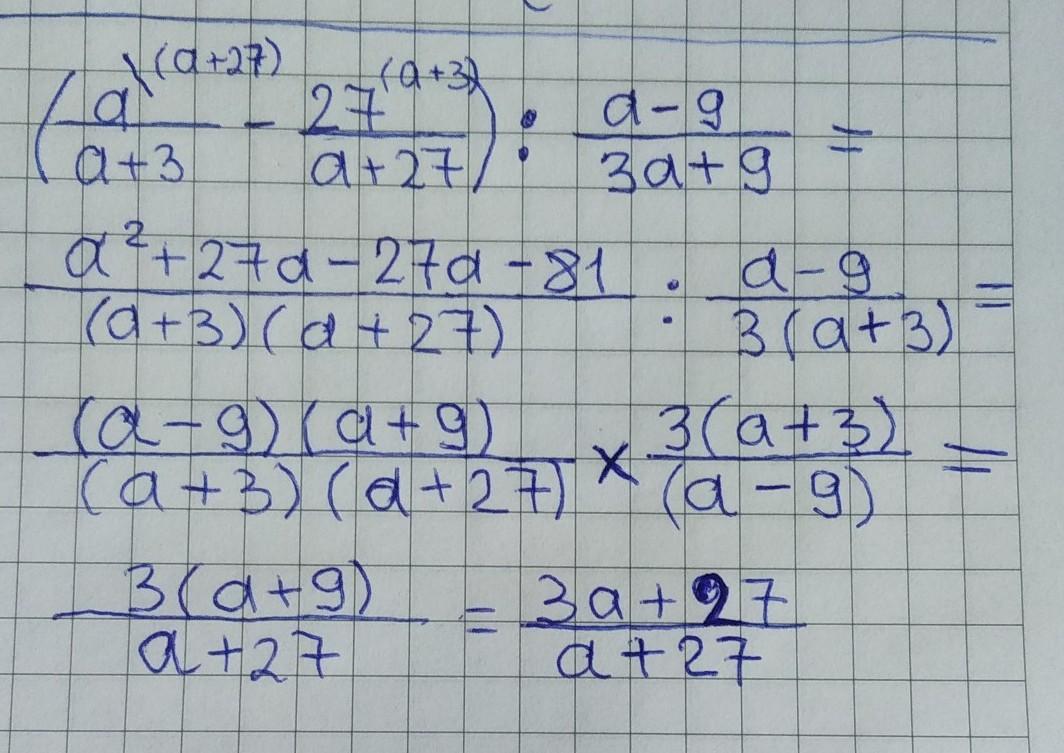 (a\(a+27)/a+3 - 27(a+3)/a+27) : a-9/3a+9 =
a²+27a-27a-81/(a+3)(a+27) : a-9/3(a+3) =
(a-9)(a+9)/(a+3)(a+27) × 3(a+3)/(a-9) =
3(a+9)/a+27 = 3a+27/a+27